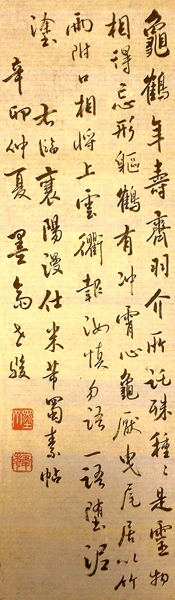 龜鶴年壽齊羽介所託殊種〻是靈物
相得忘形軀鶴有沖霄心龜厭曳尾居以竹
兩附口相將上雲衢報汝慎勿語一語墮泥
塗
右臨襄陽漫仕米芾蜀素帖
辛卯仲夏 墨禽老駿